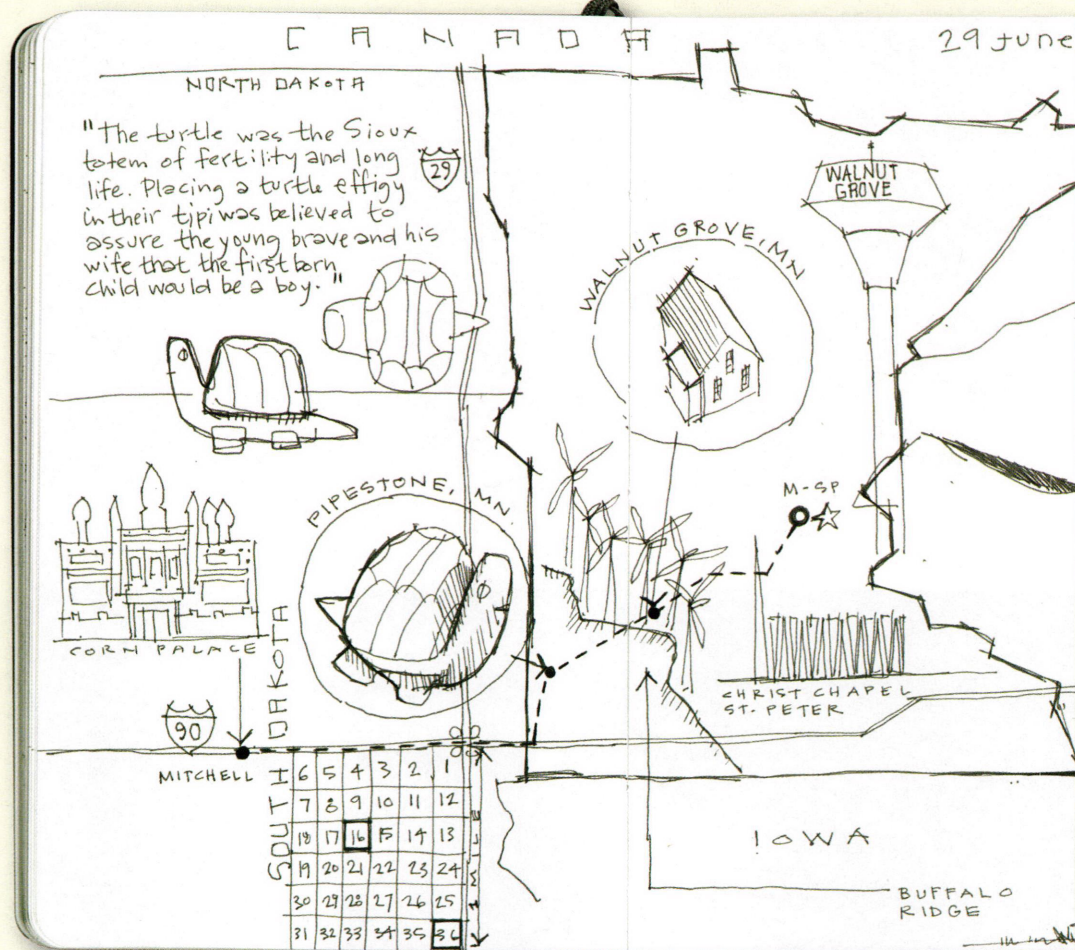 CANADA
29 June
NORTH DAKOTA
"The turtle was the Sioux
totem of fertility and long
life. Placing a turtle effigy
in their tipi was believed to
assure the young brave and his
wife that the first born
child would be a boy."
29
WALNUT
GROVE
WALNUT GROVE, MN
PIPESTONE, MN
M-SP
CORN PALACE
CHRIST CHAPEL
ST. PETER
90
MITCHELL
SOUTH DAKOTA
6 5 4 3 2 1
7 8 9 10 11 12
18 17 16 15 14 13
19 20 21 22 23 24
30 29 28 27 26 25
31 32 33 34 35 36
1 MILE
IOWA
BUFFALO
RIDGE